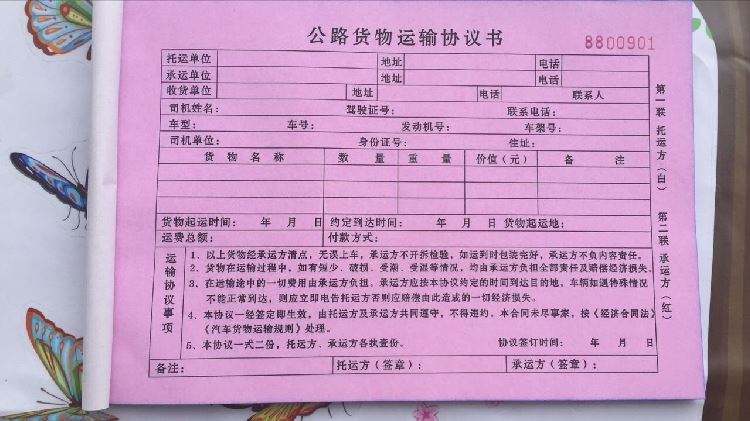 公路货物运输协议书
8800901
托运单位 地址 电话
承运单位 地址 电话
收货单位 地址 电话 联系人
司机姓名: 驾驶证号: 联系电话:
车型: 车号: 发动机号: 车架号:
司机单位: 身份证号: 住址:
货物名称 数量 重量 价值(元) 备注
货物起运时间: 年 月 日 约定到达时间: 年 月 日 货物起运地:
运费总额: 付款方式:
运输协议事项
1、以上货物经承运方清点,无误上车,承运方不开拆检验,如运到时包装完好,承运方不负内容责任。
2、货物在运输过程中,如有短少、破损、受潮、受湿等情况,均由承运方负担全部责任及赔偿经济损失。
3、在运输途中的一切费用由承运方负担、承运方应按本协议约定的时间到达目的地,车辆如遇特殊情况
不能正常到达,则应立即电告托运方否则应赔偿由此造成的一切经济损失。
4、本协议一经签定即生效,由托运方及承运方共同遵守,不得违约。本合同未尽事家,按《经济合同法》
《汽车货物运输规则》处理。
5、本协议一式二份,托运方、承运方各执壹份。 协议签订时间: 年 月 日
备注: 托运方(签章): 承运方(签章):
第一联 托运方(白)
第二联 承运方(红)